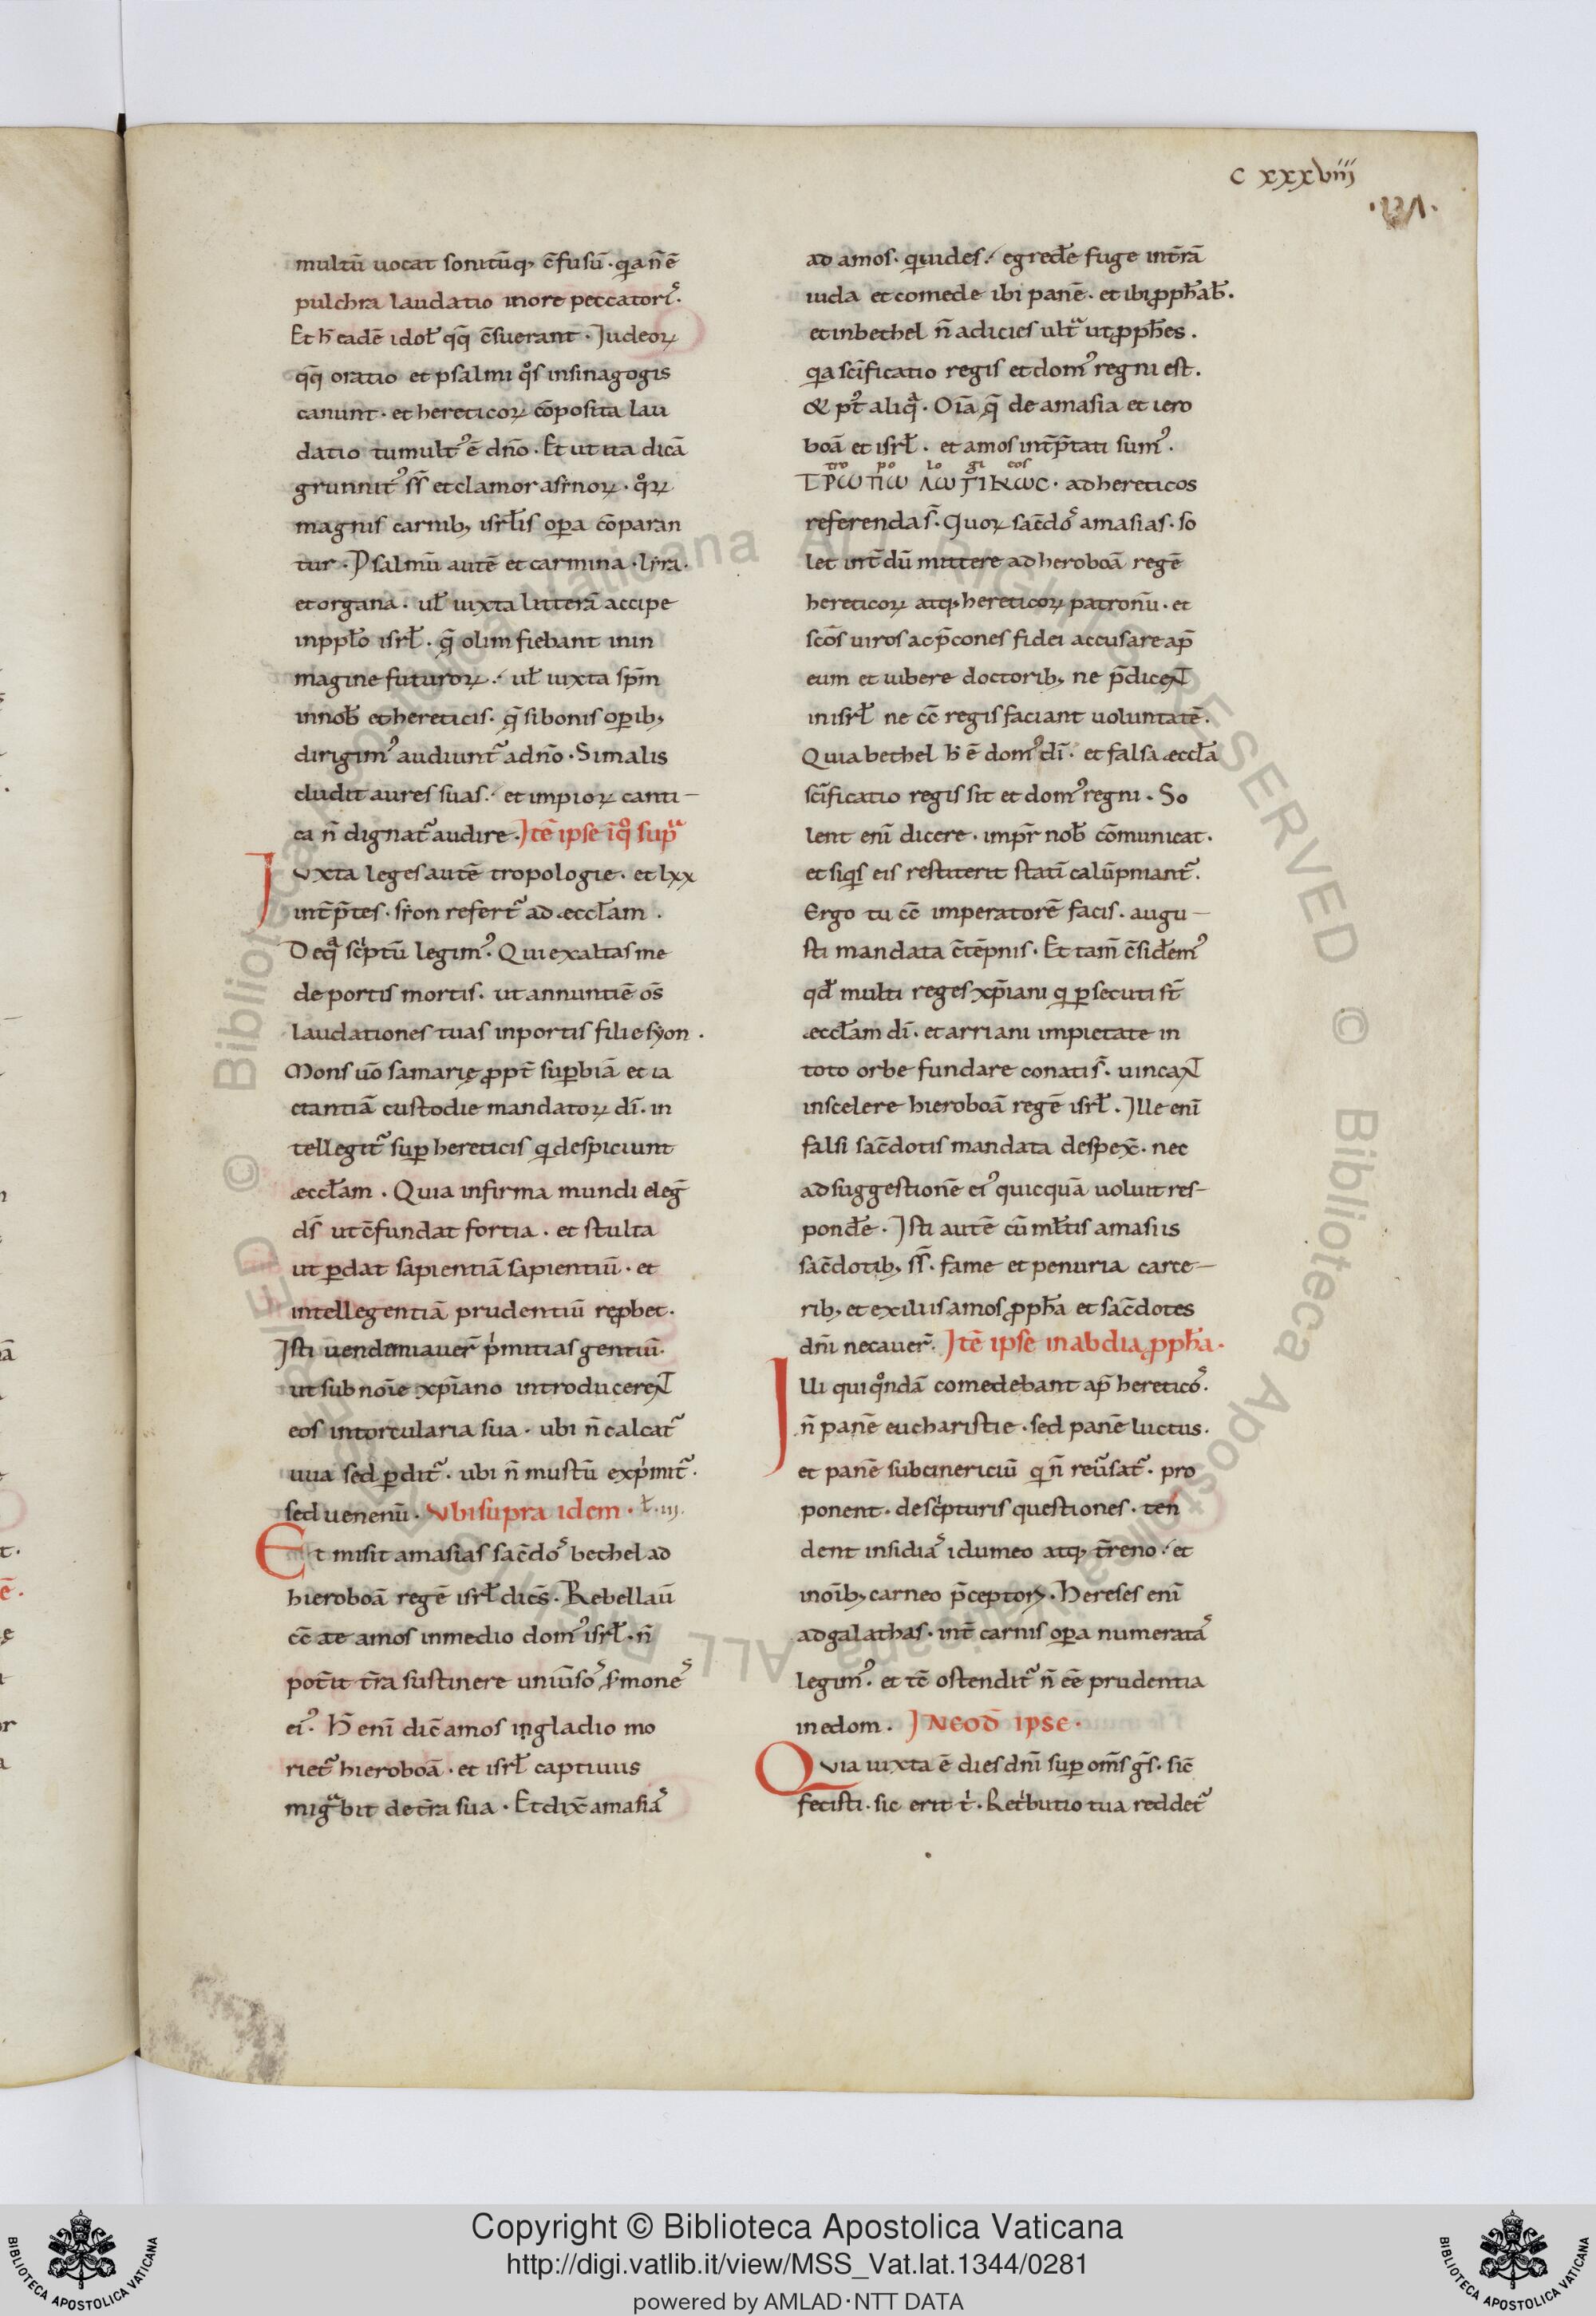 C xxxviij
·131·
multū uocat sonitūq; c̄fusū · qa n̄ ē
pulchra laudatio inore peccatoris̄.
Et h̄ eadē idol̄ qq̄ c̄suerant · Judeoꝝ
qq̄ oratio et psalmi qͦs insinagogis
canunt · et hereticoꝝ cōposita lau
datio tumultꝰ ē dn̄o · Et ut ita dicā
grunnitꝰ ss̄ et clamor asinoꝝ · qͦꝝ
magnis carnib; isrl̄is oꝑa cōparan
tur · Psalmū autē et carmina · lira ·
et organa · ul̄ iuxta litterā accipe
inppl̄o isrl̄ · q̄ olim fiebant inin
magine futuroꝝ · ul̄ iuxta sp̄m
innob̄ et hereticis · q̄ si bonis oꝑib;
dirigimꝰ audiunt᷑ adn̄o · Si malis
cludit aures suas · et impioꝝ canti –
ca n̄ dignat᷑ audire · Itē ipse īqͦ supᵃ
Iuxta leges autē tropologie · et lxx
int̄p̄tes · sion refert᷑ ad æccl̄am .
Deqᵃ sc͛ptū legimꝰ · Qui exaltas me
de portis mortis · ut annuntiē om̄s
laudationes tuas inportis filie syon .
Mons uō samarię ꝓpt̄ suꝑbiā et ia
ctantiā custodie mandatoꝝ dī · in
tellegit᷑ suꝑ hereticis q despiciunt
æccl̄am . Quia infirma mundi eleḡ
ds̄ ut c̄fundat fortia · et stulta
ut ꝑdat sapientiā sapientiū · et
intellegentiā prudentiū reꝓbet ·
Isti uendemiauer̄ pⁱmitias gentiū ·
ut sub noīe xp̄iano introducerent
eos intorcularia sua · ubi n̄ calcat᷑
uua sed ꝑdit᷑ · ubi n̄ mustū expⁱmit᷑ ·
sed uenenū · Vbi supra idem · l̄ · iij.
Et misit amasias sac̄dos bethel ad
hieroboā regē isrl̄ dices̄ · Rebellauī
c̄ te amos inmedio domꝰ isrl̄ · n̄
pot̄it t̄ra sustinere uniūsos s̄mones
eiꝰ · H̄ enī dic̄ amos ingladio mo
riet᷑ hieroboā · et isrl̄ captiuus
migᵃbit de t̄ra sua · Et dix̄ amasias
ad amos · q uides · egredēe fuge int̄rā
iuda et comede ibi panē · et ibi ꝓph̄ab̄ .
et inbethel n̄ adicies ultᵃ ut ꝓph̄es .
qa sc̄ificatio regis et domꝰ regni est .
& pꝰt aliqᵃ · Oīa q̄ de amasia et iero
boā et isrl̄ · et amos int̄p̄tati sumꝰ ·
tro po lo gi cos
ΤΡωΠω ΛωΓΙΚωC · ad hereticos
referenda s̄ · Quoꝝ sac̄dos amasias · so
let int̄dū mittere ad heroboā regē
hereticoꝝ atq; hereticoꝝ patronū · et
sc̄os uiros ac p̄cones fidei accusare ap̄
eum et iubere doctorib; ne p̄dicent
inisrl̄ ne c̄ regis faciant uoluntatē .
Quia bethel h̄ ē domꝰ dī · et falsa æccl̄a
sc̄ificatio regis sit et domꝰ regni · So
lent enī dicere · impr̄ nob̄ cōmunicat ·
et siqs eis restiterit statī calūpniant᷑ .
Ergo tu c̄ imperatorē facis · augu –
sti mandata c̄tēpnis · Et tam̄ c̄sidem̄ꝰ
qd̄ multi reges xp̄iani q ꝑsecuti st̄
æccl̄am dī · et arriani impietate in
toto orbe fundare conati s̄ · uincant
inscelere hieroboā regē isrl̄ · Ille enī
falsi sac̄dotis mandata despex̄ · nec
ad suggestionē eiꝰ quicquā uoluit res–
pondēe · Isti autē cū ml̄tis amasiis
sac̄dotib; ss̄ · fame et penuria carce–
rib; et exiliis amos ꝓph̄a et sac̄dotes
dn̄i necauer̄ · Itē ipse in abdia ꝓph̄a ·
Illi qui qͦndā comedebant ap̄ hereticos ·
n̄ panē eucharistie · sed panē luctus ·
et panē subcinericiū q n̄ reūsat᷑ · pro
ponent · de sc͛pturis questiones · ten
dent insidias idumeo atq; t̄reno · et
inoīb; carneo p̄ceptoꝝ · Hereses enī
ad galathas · int̄ carnis oꝑa numeratas
legimꝰ · et tē ostendit᷑ n̄ eē prudentia
inedom . INEOD̄ ipse ·
Quia iuxta ē dies dn̄i suꝑ om̄s gs̄ · sic̄
fecisti · sic erit tⁱ · Retⁱbutio tua reddet᷑
Copyright © Biblioteca Apostolica Vaticana
http://digi.vatlib.it/view/MSS_Vat.lat.1344/0281
powered by AMLAD·NTT DATA
BIBLIOTECA APOSTOLICA VATICANA
BIBLIOTECA APOSTOLICA VATICANA